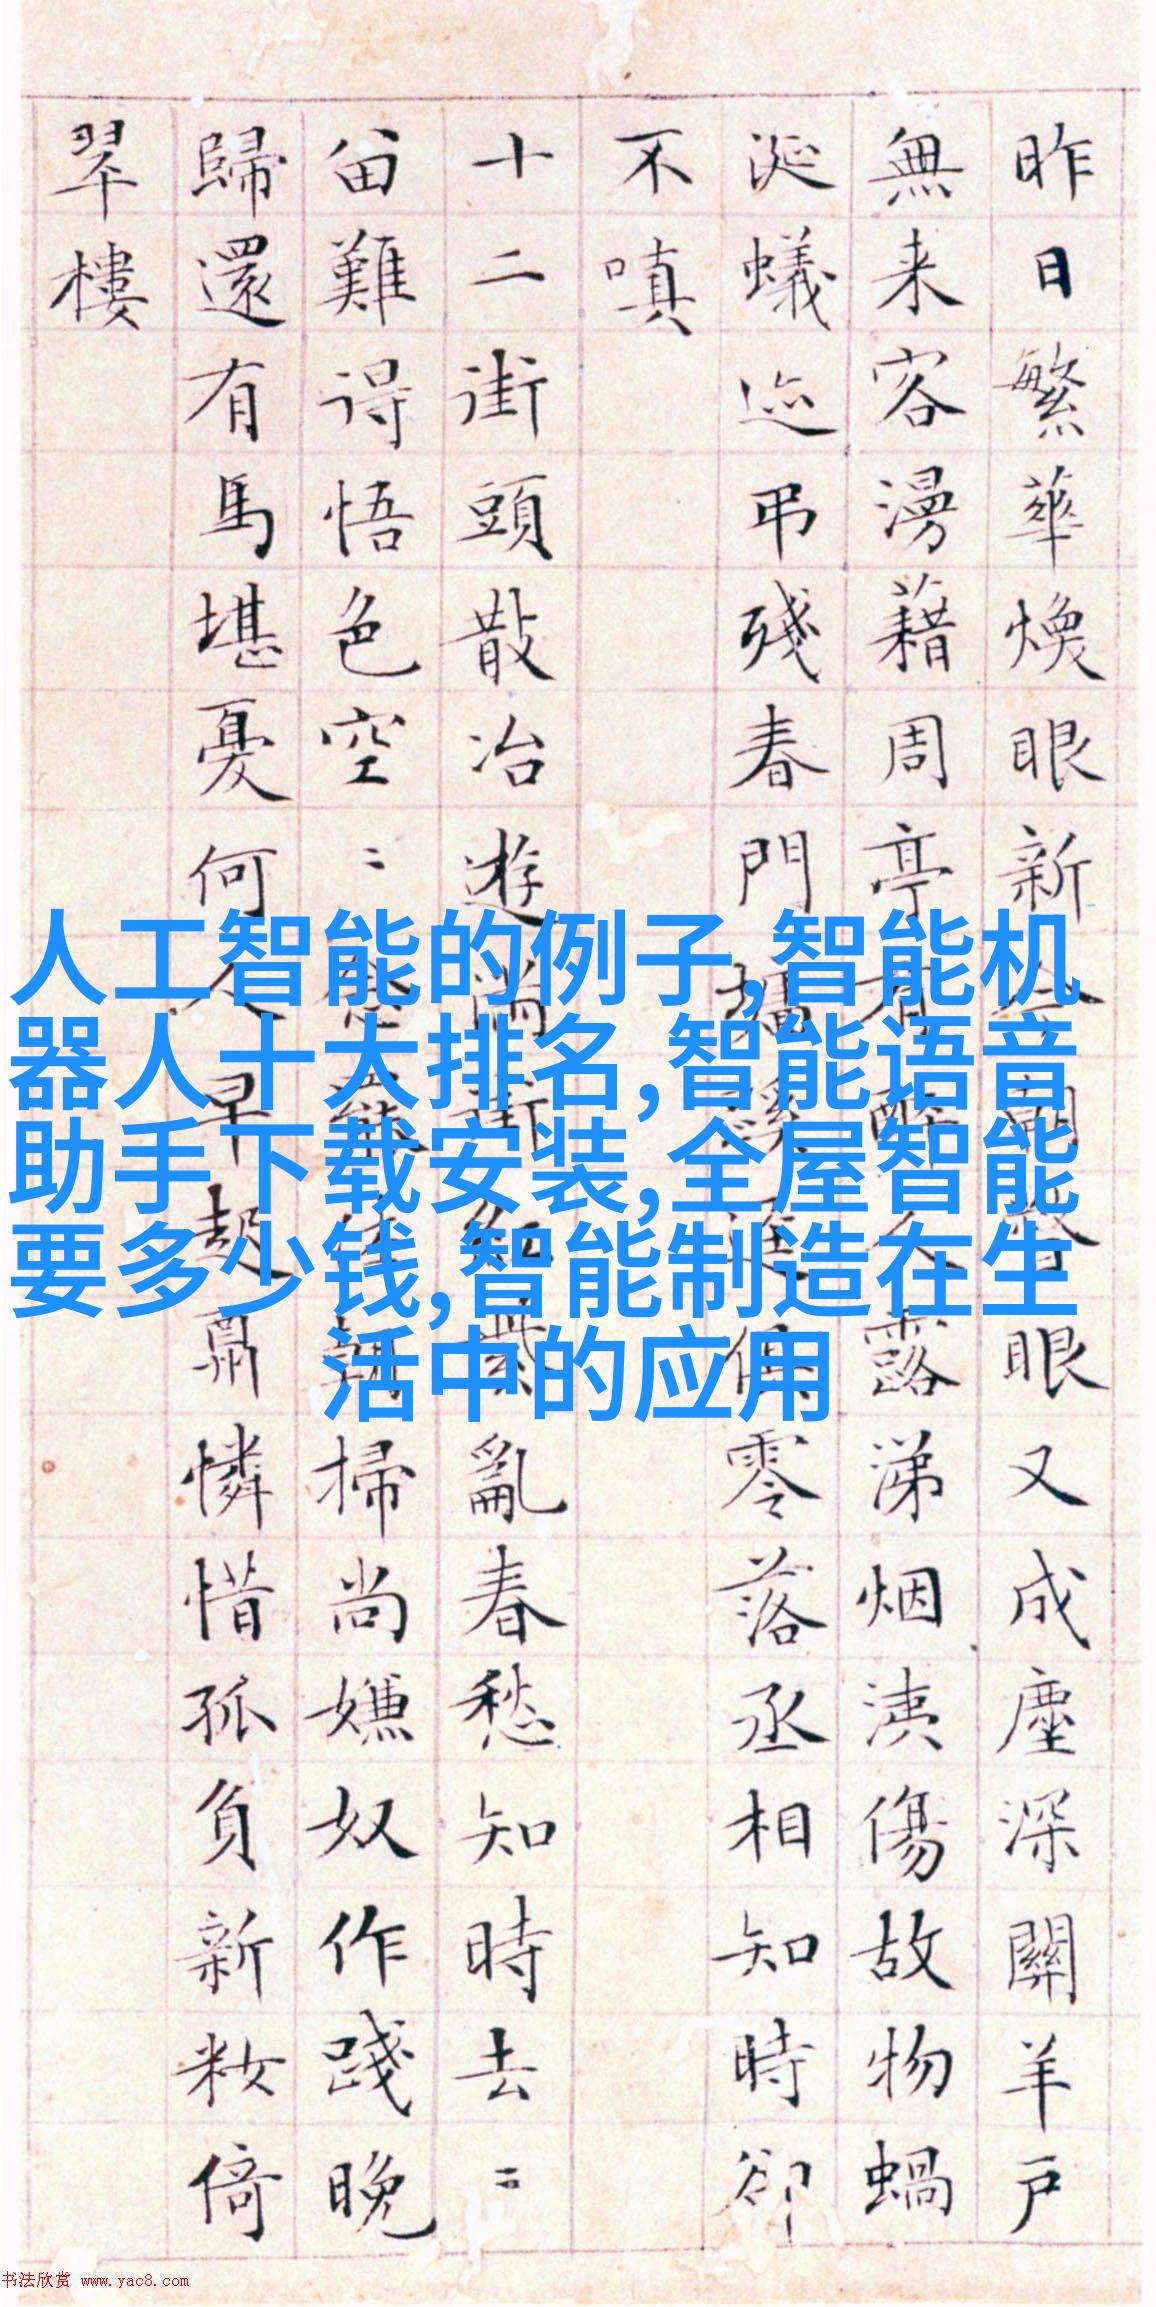 昨日繁華煥眼新今朝瞥眼又成塵深關羊戶
無来客漫藉周亭有醉人露涕烟洟傷故物蝸
涎蟻迹弔殘春門墻蹊逕俱零落丞相知時卻
不嗔
十二街頭散冶遊滿街紅紫亂春愁知時去〻
留難得悟色空〻念罷休朝掃尚嫌奴作踐晚
歸還有馬堪憂何人早起肩憐惜孤負新妝倚
翠樓
人工智能的例子,智能机
器人十大排名,智能语音
助手下载安装,全屋智能
要多少钱,智能制造在生
活中的应用
书法欣赏 www.yac8.com